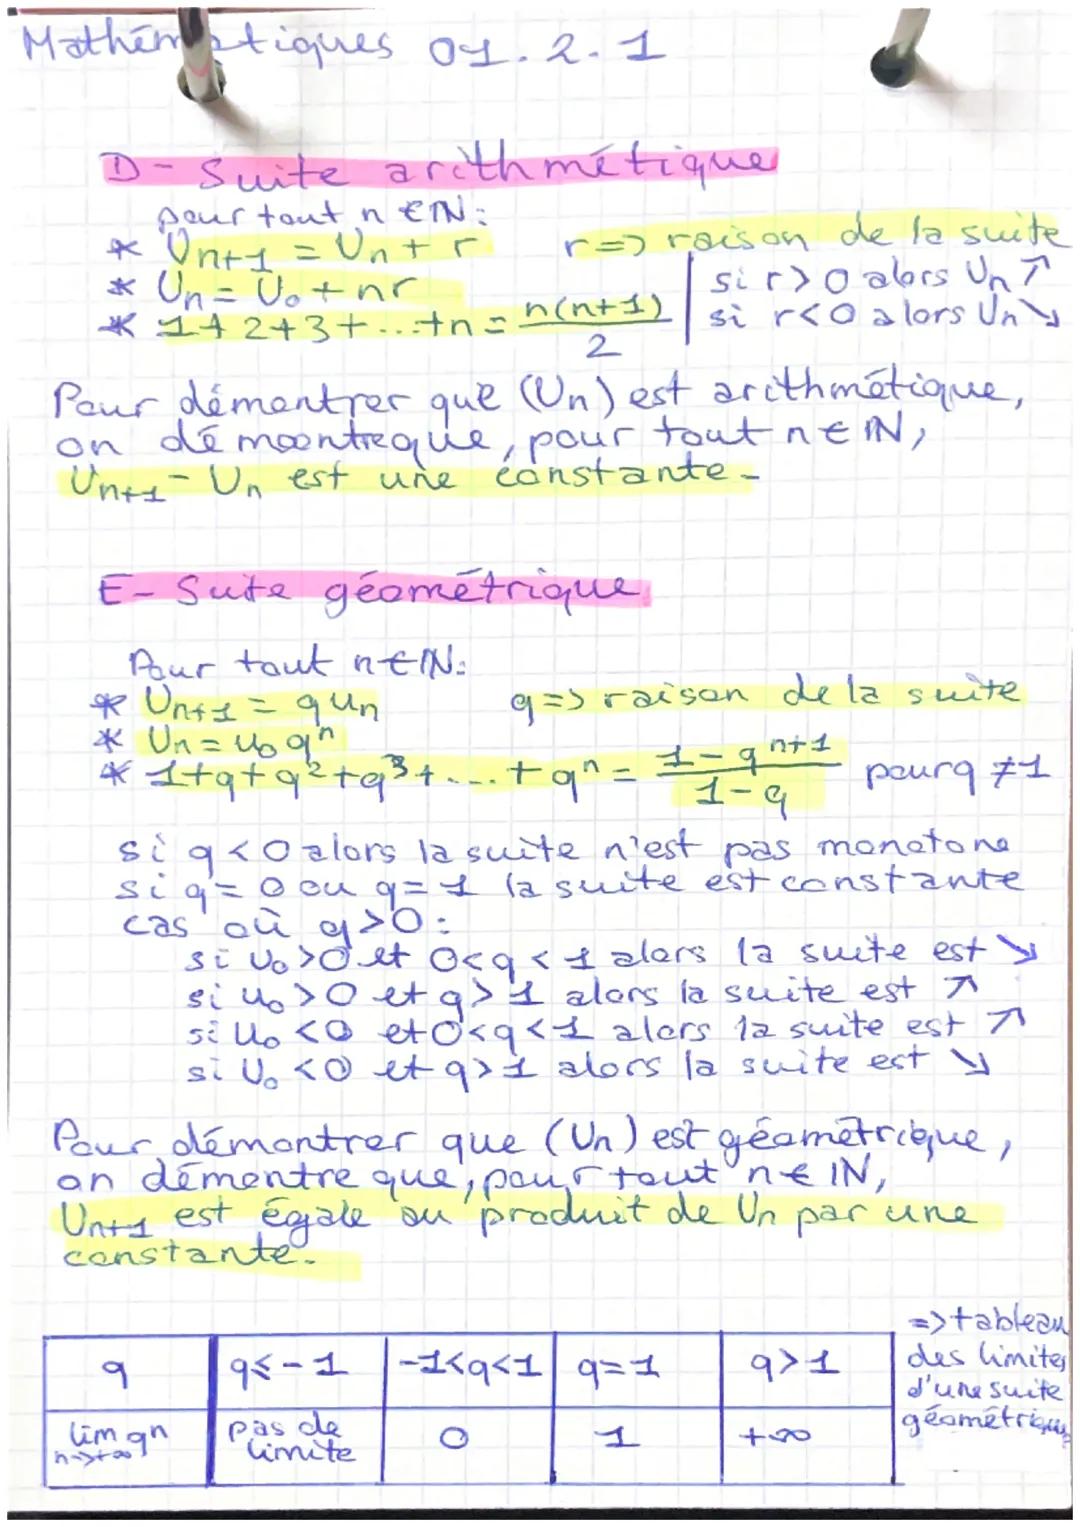 Mathématiques 01.2.1
D- Suite arithmétique
pour tout n ∈ ℕ:
* Un+1 = Un + r r => raison de la suite
* Un = U0 + nr si r > 0 alors Un ↗
* 1+2+3+...+n = n(n+1)/2 si r<0 alors Un ↘
Pour démontrer que (Un) est arithmétique,
on démoontreque, pour tout n ∈ ℕ,
Un+1 - Un est une constante.
E- Suite géométrique
Pour tout n ∈ ℕ:
* Un+1 = qun q => raison de la suite
* Un = u0 qⁿ
* 1+q+q²+q³+...+qⁿ = (1-qⁿ⁺¹)/(1-q) pour q ≠ 1
si q<0 alors la suite n'est pas monotone
si q=0 ou q=1 la suite est constante
cas où q>0:
si U0>0 et 0<q<1 alors la suite est ↘
si u0>0 et q>1 alors la suite est ↗
si U0<0 et 0<q<1 alors la suite est ↗
si U0<0 et q>1 alors la suite est ↘
Pour démontrer que (Un) est géométrique,
on démontre que, pour tout n ∈ ℕ,
Un+1 est égale au produit de Un par une
constante.
=> tableau
des limites
d'une suite
géométrique
q q≤-1 -1<q<1 q=1 q>1
lim qn n->+∞ pas de limite 0 1 +∞